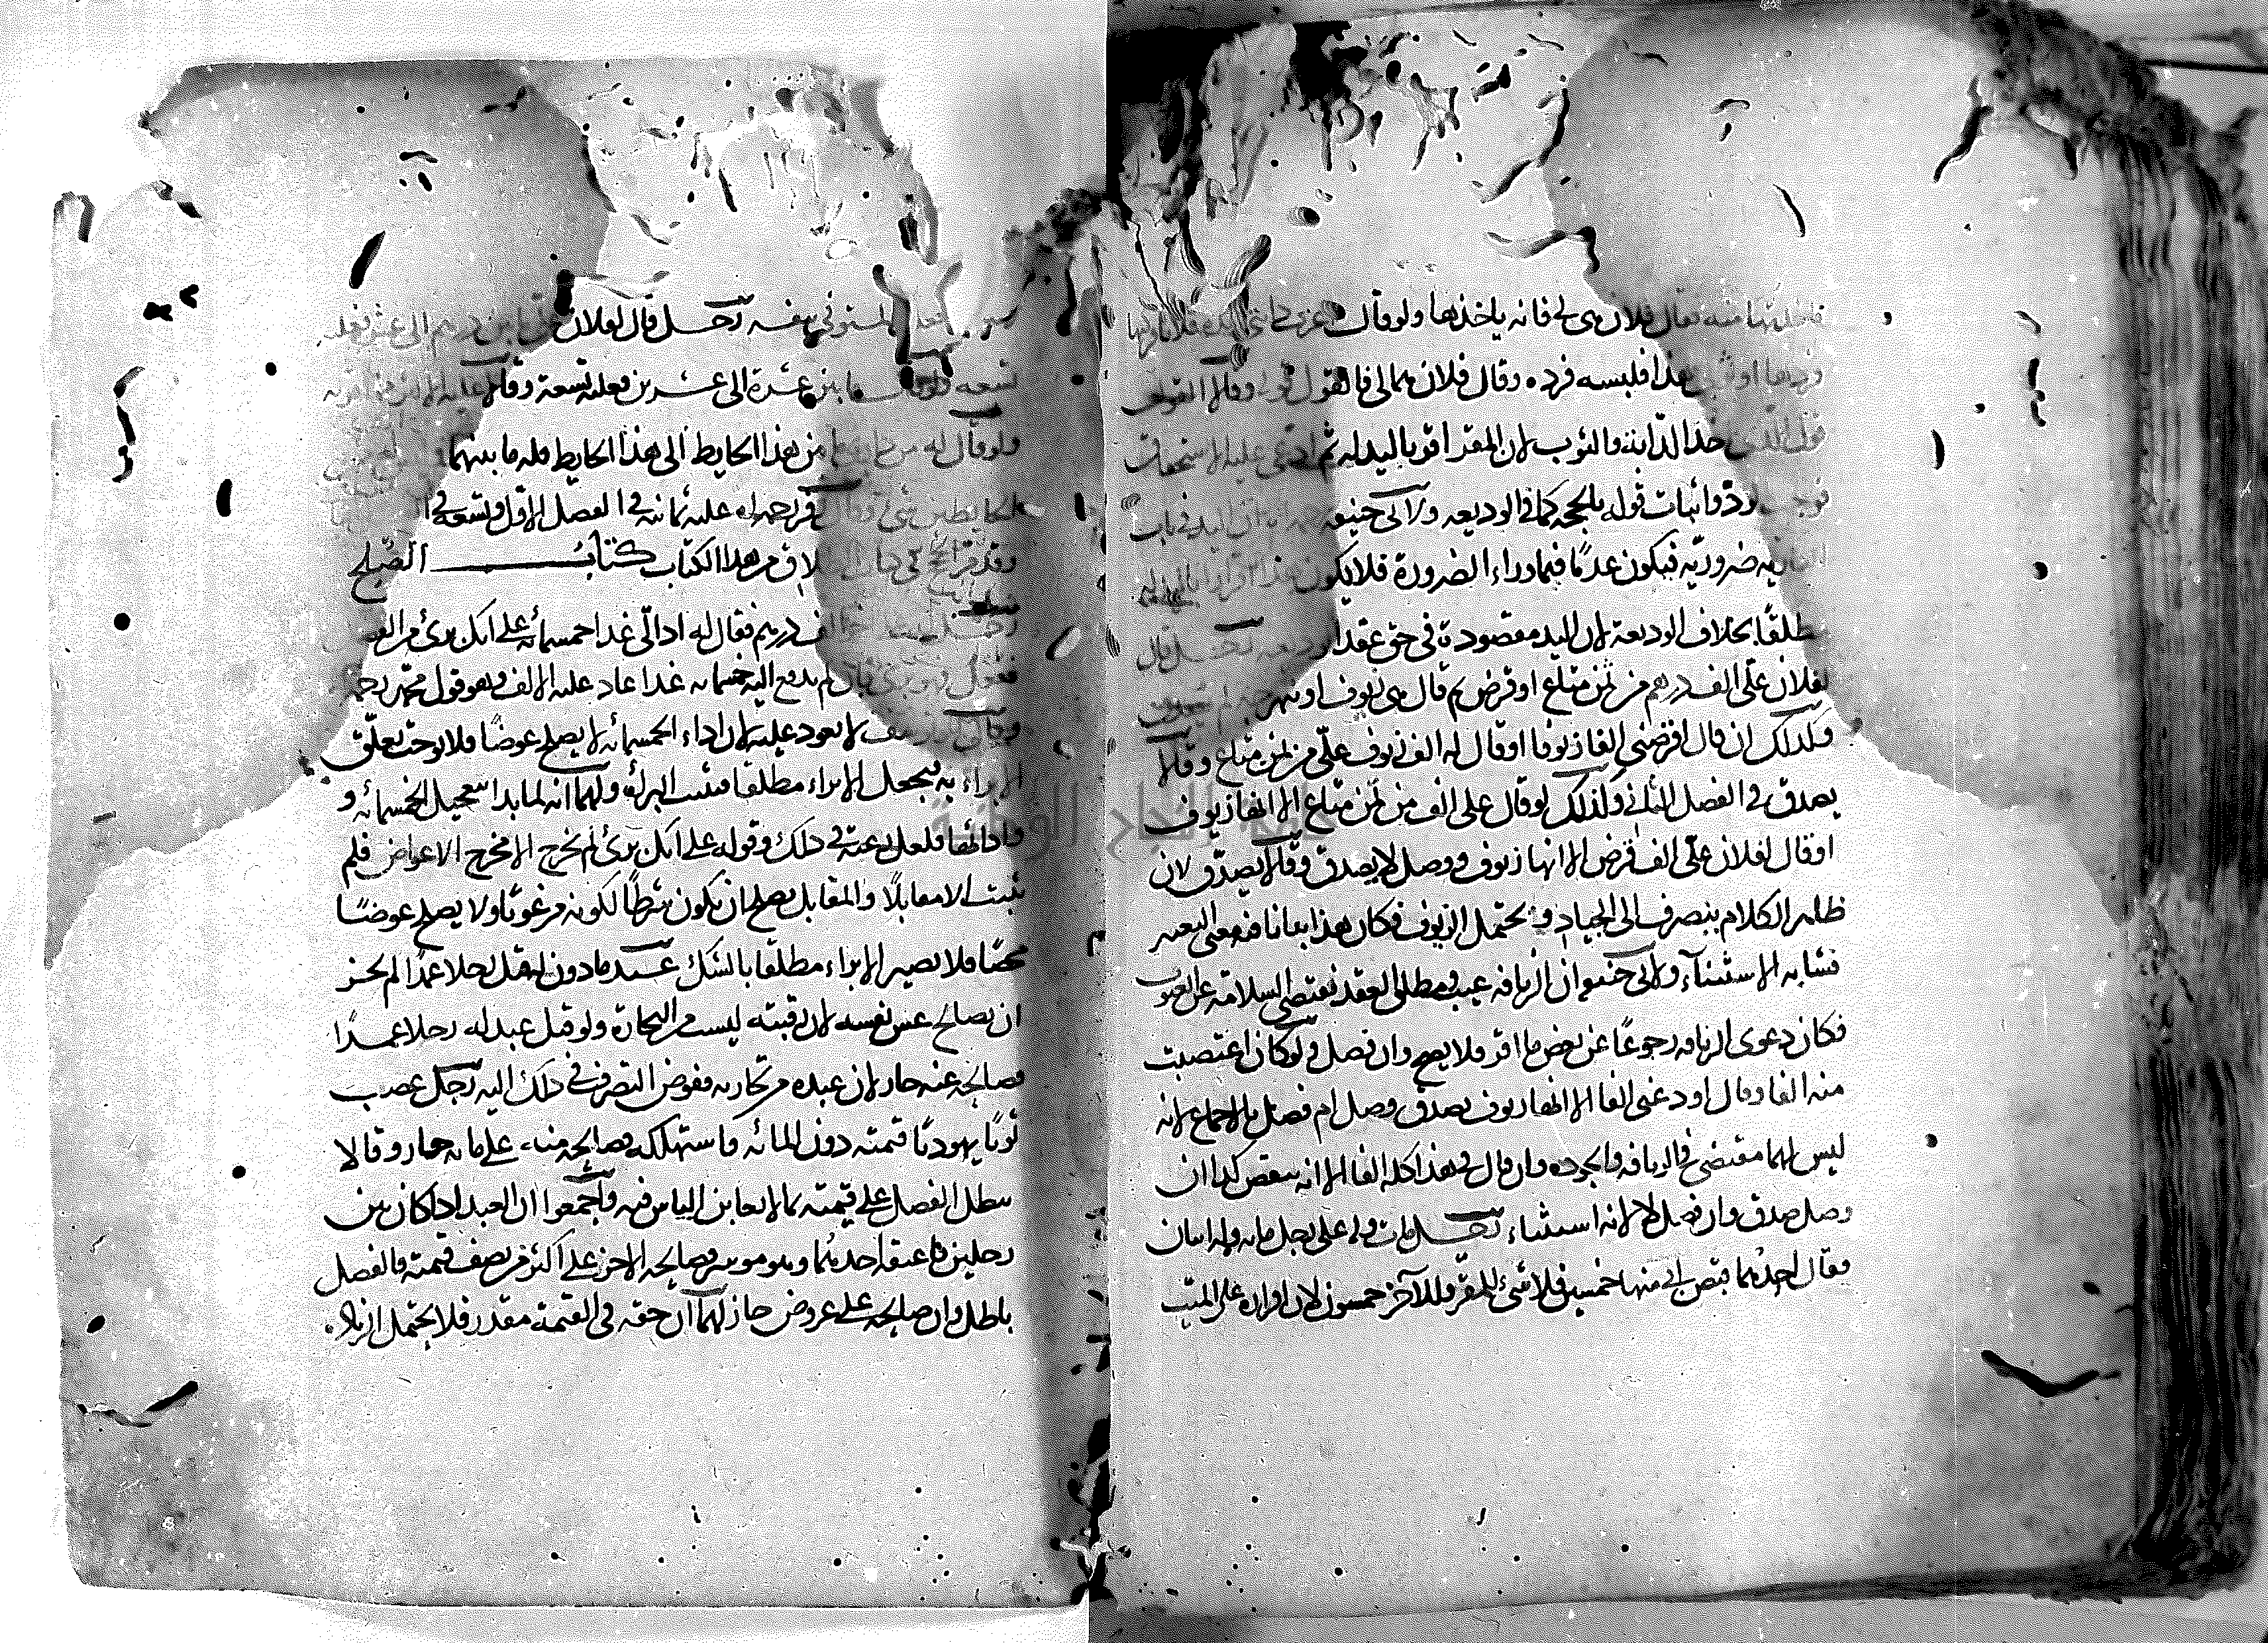 منه فقال فلان هي لي فانه ياخذها ولو قال
هذا فلبسه فرده وقال فلان هما لي فالقول قوله وقالا القول
خذ الدابة والثوب لان المقر اقر باليد له ثم ادعى عليه الاستحقاق
رد واثبات قوله بالحجه كما في الوديعه ولابي حنيفه ان اليد في باب
ضروريه فيكون عدما فيما وراء الضرورة فلا يكون
مطلقا بخلاف الوديعة لان اليد مقصودة في حق عقد الوديعه رجل قال
لفلان علي الف درهم من ثمن متاع او قرض ثم قال هي زيوف او نبهرجه
وكذلك ان قال اقرضني الفا زيوفا او قال له الف زيوف علي من ثمن متاع وقالا
يصدق في الفصل الثاني وكذلك لو قال علي الف من ثمن متاع الا انها زيوف
او قال لفلان علي الف قرض الا انها زيوف ووصل لا يصدق وقالا يصدق لان
ظاهر الكلام ينصرف الى الجياد ويحتمل الزيوف فكان هذا بيانا فيه معنى التغيير
فشابه الاستثناء ولابي حنيفه ان الزيافه عيب ومطلق العقد يقتضي السلامه عن العيوب
فكان دعوى الزيافه رجوعا عن بعض ما اقر فلا يصح وان فصل ولو كان اغتصبت
منه الفا وقال اودعني الفا الا انها زيوف يصدق وصل ام فصل بالاجماع لانه
ليس لهما مقتضى في الزيافه والجوده وان قال في هذا كله الفا الا انه ينقص كذا ان
وصل صدق وان فصل لا لانه استثناء رجل مات وله على رجل مايه وله ابنان
فقال احدهما قبض ابي منها خمسين فلا شئ للمقر وللآخر خمسون لان اقراره على الميت
المستوفي بنفسه رجل قال لفلان علي ما بين درهم الى عشرة فعليه
تسعه ولو قال ما بين عشرة الى عشرين فعليه تسعة وقالا عليه
ولو قال له من هذا الحايط الى هذا الحايط فله ما بينهما
الحايطين شئ وقال زفر رحمه الله عليه ثمانيه في الفصل الاول وتسعه في
من هذا الكتاب كتاب الصلح
الف درهم فقال له اد الي غدا خمسمائه على انك برئ من الفضل
فهو برئ فان لم يدفع اليه خمسمايه غدا عاد عليه الالف وهو قول محمد رحمه
وقال ابو يوسف لا يعود عليه لان اداء الخمسمائه لا يصلح عوضا فلا يوجب تعلق
الابراء به فيجعل الابراء مطلقا فثبت البرأه ولهما انه لما بدا بتعجيل الخمسمائه و
واداؤها فلعل رغبته في ذلك وقوله على انك برئ لم يخرج الا مخرج الاعواض فلم
يثبت الا مقابلا والمقابل يصلح ان يكون شرطا لكونه مرغوبا ولا يصلح عوضا
محضا فلا يصير الابراء مطلقا بالشك عبد مادون له قتل رجلا عمدا لم يجز
ان يصالح عن نفسه لان رقبته ليست من التجارة ولو قتل عبد له رجلا عمدا
فصالحه عنه جاز لان عبده من تجارته ففوض التصرف في ذلك اليه رجل غصب
ثوبا يهوديا قيمته دون المائه فاستهلكه فصالحه منه على مايه جاز وقالا
يبطل الفضل على قيمته بما لا يتغابن الناس فيه واجمعوا ان العبد اذا كان بين
رجلين فاعتقه احدهما وهو موسر فصالحه الاخر على اكثر من نصف قيمته فالفضل
باطل وان صالحه على عروض جاز لهما ان حقه في القيمة مقدر فلا يحتمل الزيادة